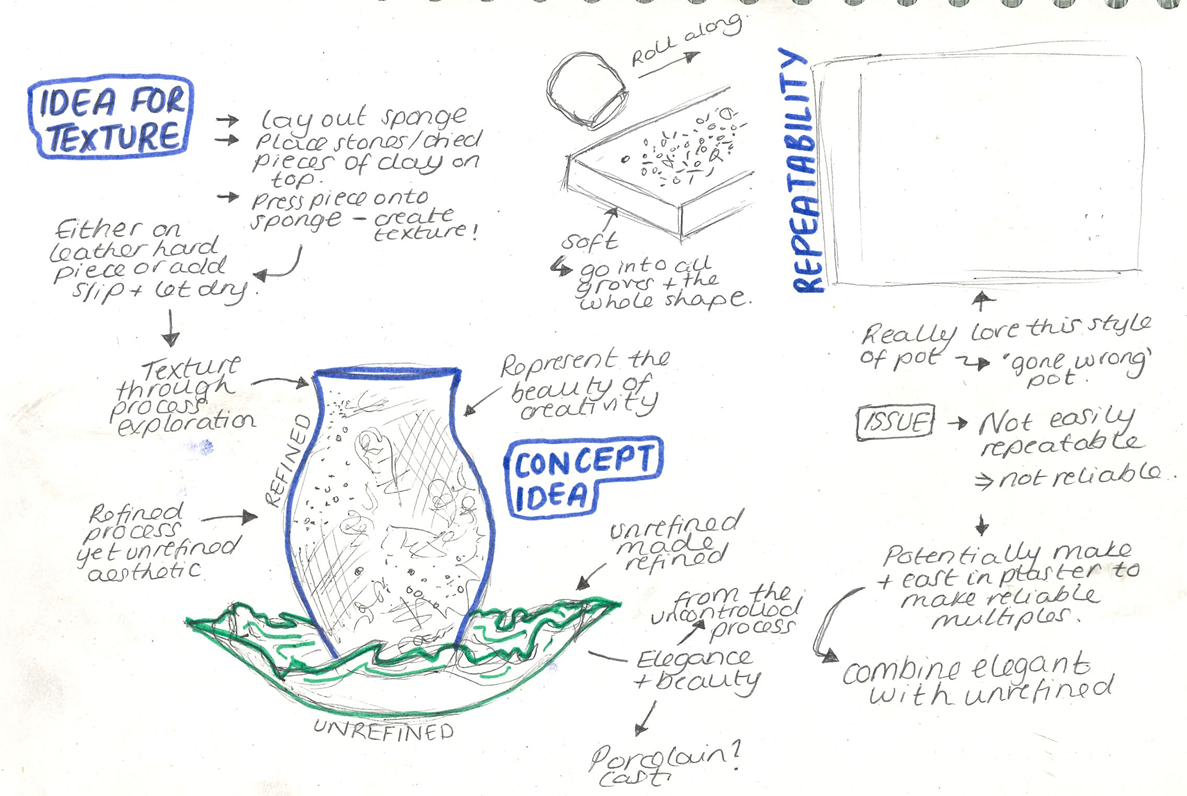 IDEA FOR
TEXTURE
→ Lay out sponge
→ Place stones/dried
pieces of clay on
top.
→ Press piece onto
sponge – create
texture!
Either on
leather hard
piece or add
slip + let dry.
Texture
through
process
exploration
Roll along.
soft
↳ go into all
groves + the
whole shape.
REPEATABILITY
Really love this style
of pot → 'gone wrong'
pot.
ISSUE → Not easily
repeatable
⇒ not reliable.
Potentially make
+ cast in plaster to
make reliable
multiples.
combine elegant
with unrefined
Represent the
beauty of
creativity
CONCEPT
IDEA
REFINED
Refined
process
yet unrefined
aesthetic
unrefined
made
refined
from the
uncontrolled
process
Elegance
+ beauty
Porcelain?
cast
UNREFINED